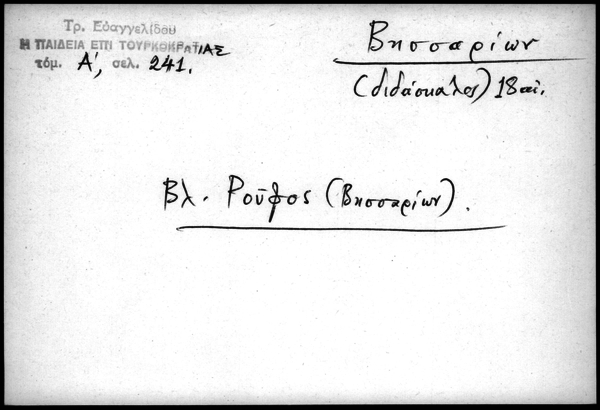 Τρ. Εὐαγγελίδου
Η ΠΑΙΔΕΙΑ ΕΠΙ ΤΟΥΡΚΟΚΡΑΤΙΑΣ
τόμ. Α', σελ. 241.
Βησσαρίων
(διδάσκαλος) 18 αἰ.
Βλ. Ροῦφος (Βησσαρίων).